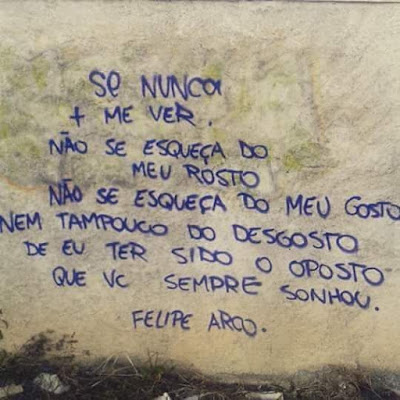 Se NUNCA
+ ME VER.
NÃO SE ESQUEÇA DO
MEU ROSTO
NÃO SE ESQUEÇA DO MEU GOSTO
NEM TAMPOUCO DO DESGOSTO
DE EU TER SIDO O OPOSTO
QUE VC SEMPRE SONHOU.
FELIPE ARCO.